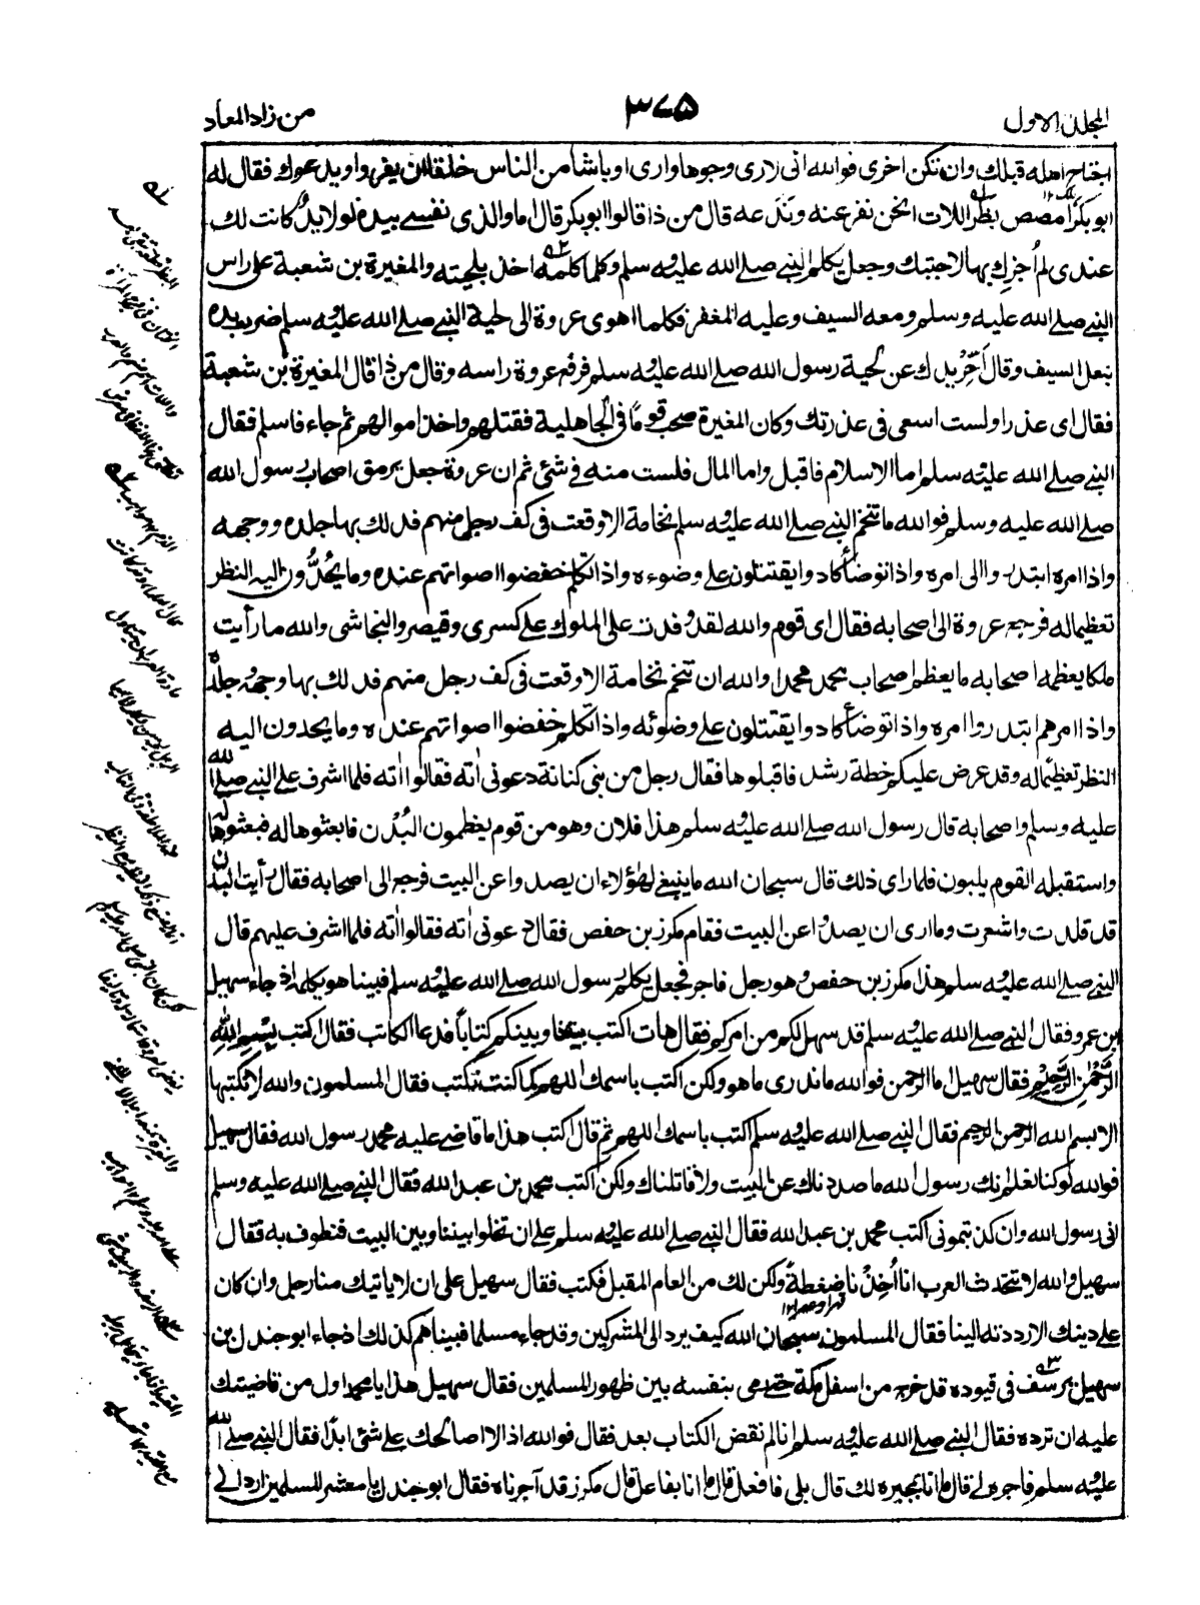 المجلد الاول
٣٧٥
من زاد المعاد
اجتاح اهله قبلك وان تكن اخرى فوالله انى لارى وجوها وارى اوباشا من الناس خلقا ان يفروا ويدعوك فقال له
ابو بكر امصص بظر اللات انحن نفر عنه وندعه قال من ذا قالوا ابو بكر قال اما والذى نفسى بيده لولا يد كانت لك
عندى لم أجزك بها لاجبتك وجعل يكلم النبى صلى الله عليه وسلم وكلما كلمه اخذ بلحيته والمغيرة بن شعبة على راس
النبى صلى الله عليه وسلم ومعه السيف وعليه المغفر فكلما اهوى عروة الى لحية النبى صلى الله عليه وسلم ضرب يده
بنعل السيف وقال أخّر يدك عن لحية رسول الله صلى الله عليه وسلم فرفع عروة راسه وقال من ذا قال المغيرة بن شعبة
فقال اى عذر اولست اسعى فى عذرتك وكان المغيرة صحب قومًا فى الجاهلية فقتلهم واخذ اموالهم ثم جاء فاسلم فقال
النبى صلى الله عليه وسلم اما الاسلام فاقبل واما المال فلست منه فى شئ ثم ان عروة جعل يرمق اصحاب رسول الله
صلى الله عليه وسلم فوالله ما تنخم النبى صلى الله عليه وسلم نخامة الا وقعت فى كف رجل منهم فدلك بها جلده ووجهه
واذا امره ابتدروا الى امره واذا توضأ كادوا يقتتلون على وضوءه واذا تكلم خفضوا اصواتهم عنده وما يحدّون اليه النظر
تعظيما له فرجع عروة الى اصحابه فقال اى قوم والله لقد وفدت على الملوك على كسرى وقيصر والنجاشى والله ما رأيت
ملكا يعظمه اصحابه ما يعظم اصحاب محمد محمدا والله ان تنخم نخامة الا وقعت فى كف رجل منهم فدلك بها وجهه وجلده
واذا امرهم ابتدروا امره واذا توضأ كادوا يقتتلون على وضوئه واذا تكلم خفضوا اصواتهم عنده وما يحدون اليه
النظر تعظيما له وقد عرض عليكم خطة رشد فاقبلوها فقال رجل من بنى كنانة دعونى أته فقالوا أته فلما اشرف على النبى صلى الله
عليه وسلم واصحابه قال رسول الله صلى الله عليه وسلم هذا فلان وهو من قوم يعظمون البُدن فابعثوها له فبعثوها له
واستقبله القوم يلبون فلما راى ذلك قال سبحان الله ما ينبغى لهؤلاء ان يصدوا عن البيت فرجع الى اصحابه فقال رأيت البدن
قد قلدت واشعرت وما ارى ان يصدوا عن البيت فقام مكرز بن حفص فقال دعونى أته فقالوا أته فلما اشرف عليهم قال
النبى صلى الله عليه وسلم هذا مكرز بن حفص وهو رجل فاجر فجعل يكلم رسول الله صلى الله عليه وسلم فبينا هو يكلمه اذ جاء سهيل
بن عمرو فقال النبى صلى الله عليه وسلم قد سهل لكم من امركم فقال هات اكتب بيننا وبينكم كتابًا فدعا الكاتب فقال اكتب بسم الله
الرحمن الرحيم فقال سهيل اما الرحمن فوالله ما ندرى ما هو ولكن اكتب باسمك اللهم كما كنت تكتب فقال المسلمون والله لا نكتبها
الا بسم الله الرحمن الرحيم فقال النبى صلى الله عليه وسلم اكتب باسمك اللهم ثم قال اكتب هذا ما قاضى عليه محمد رسول الله فقال سهيل
فوالله لو كنا نعلم انك رسول الله ما صددناك عن البيت ولا قاتلناك ولكن اكتب محمد بن عبد الله فقال النبى صلى الله عليه وسلم
انى رسول الله وان كذبتمونى اكتب محمد بن عبد الله فقال النبى صلى الله عليه وسلم على ان تخلوا بيننا وبين البيت فنطوف به فقال
سهيل والله لا تتحدث العرب انا أخذنا ضغطةً ولكن لك من العام المقبل فكتب فقال سهيل على ان لا ياتيك منا رجل وان كان
على دينك الا رددته الينا فقال المسلمون سبحان الله كيف يرد الى المشركين وقد جاء مسلما فبيناهم كذلك اذ جاء ابو جندل بن
سهيل يرسف فى قيوده قد خرج من اسفل مكة حتى رمى بنفسه بين ظهور المسلمين فقال سهيل هذا يا محمد اول من قاضيتك
عليه ان ترده فقال النبى صلى الله عليه وسلم انا لم نقض الكتاب بعد فقال فوالله اذا لا اصالحك على شئ ابدًا فقال النبى صلى الله
عليه وسلم فاجره لى قال ما انا بمجيره لك قال بلى فافعل قال ما انا بفاعل قال مكرز قد آجرناه فقال ابو جندل يا معشر المسلمين ارد الى